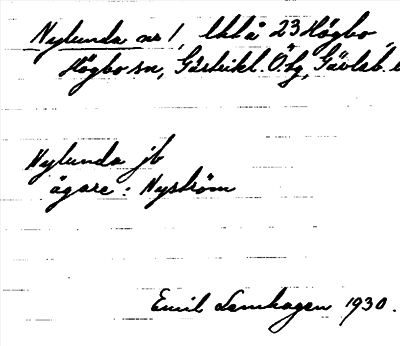 Nylunda nr 1, lht å 23 Högbo,
Högbo sn, Gästrikl. Ötg, Gävleb.
Nylunda jb
ägare: Nyström
Emil Lemhagen 1930.